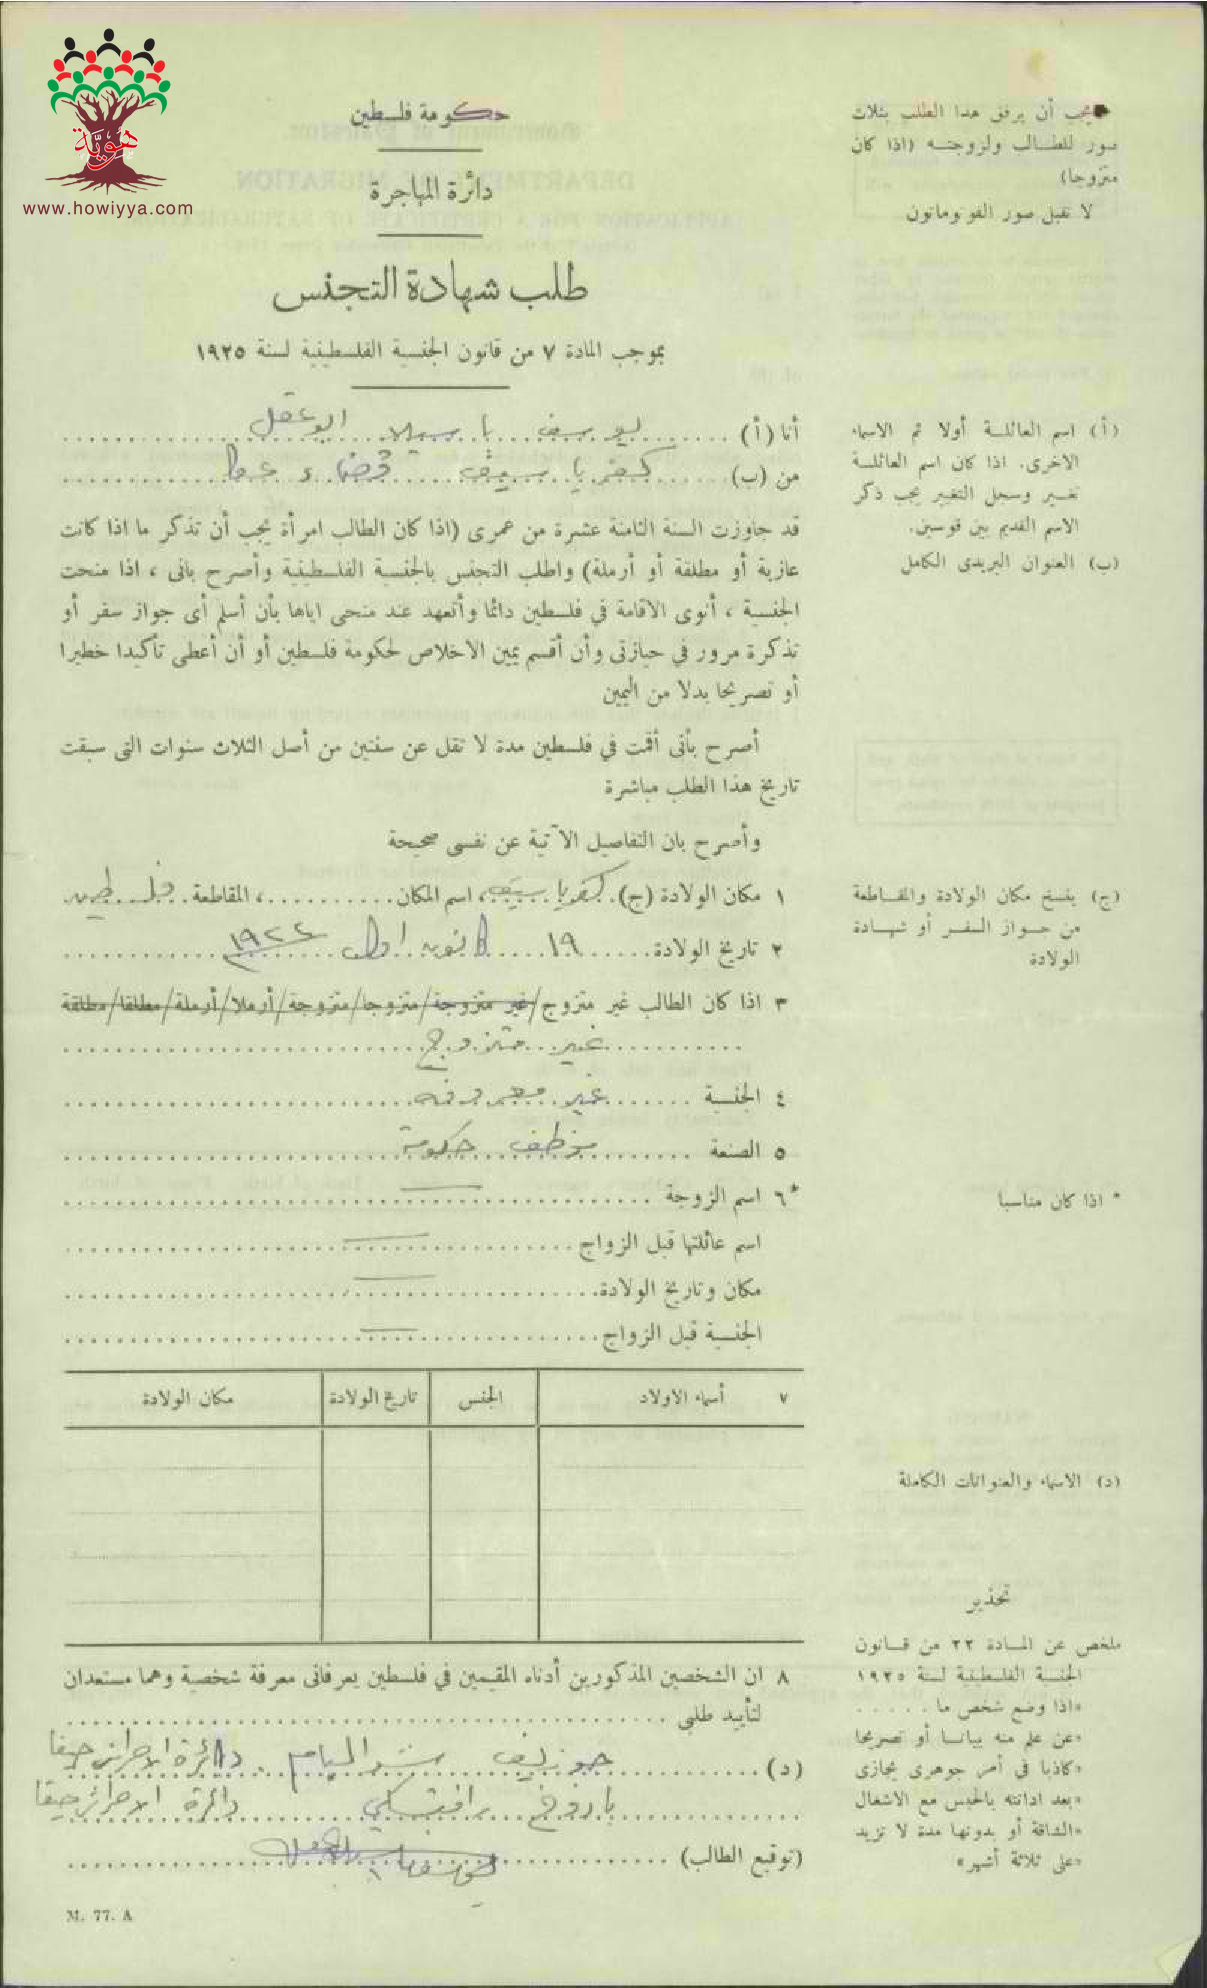 هوية
www.howiyya.com
حكومة فلسطين
دائرة المهاجرة
طلب شهادة التجنس
بموجب المادة ٧ من قانون الجنسية الفلسطينية لسنة ١٩٢٥
يجب أن يرفق هذا الطلب بثلاث
صور للطالب ولزوجته (اذا كان
متزوجا)
لا تقبل صور الفوتوماتون
أنا (أ) يوسف باسيلا ابو عقل
من (ب) كفر ياسيف قضاء عكا
(أ) اسم العائلة أولا ثم الاسماء
الاخرى. اذا كان اسم العائلة
تغير وسجل التغيير يجب ذكر
الاسم القديم بين قوسين.
(ب) العنوان البريدى الكامل
قد جاوزت السنة الثامنة عشرة من عمرى (اذا كان الطالب امرأة يجب أن تذكر ما اذا كانت
عازبة أو مطلقة أو أرملة) واطلب التجنس بالجنسية الفلسطينية وأصرح بانى ، اذا منحت
الجنسية ، أنوى الاقامة في فلسطين دائما وأتعهد عند منحى اياها بأن أسلم أى جواز سفر أو
تذكرة مرور في حيازتى وأن أقسم يمين الاخلاص لحكومة فلسطين أو أن أعطى تأكيدا خطيرا
أو تصريحا بدلا من اليمين
أصرح بأنى أقمت في فلسطين مدة لا تقل عن سنتين من أصل الثلاث سنوات التى سبقت
تاريخ هذا الطلب مباشرة
وأصرح بان التفاصيل الآتية عن نفسى صحيحة
١ مكان الولادة (ج) كفر ياسيف، اسم المكان ، المقاطعة فلسطين
(ج) ينسخ مكان الولادة والمقاطعة
من جواز السفر أو شهادة
الولادة
٢ تاريخ الولادة ١٩ كانون اول ١٩٢٢
٣ اذا كان الطالب غير متزوج/غير متزوجة/متزوجا/متزوجة/أرملا/أرملة/مطلقا/مطلقة
غير متزوج
٤ الجنسية غير معروفه
٥ الصنعة موظف حكومة
*٦ اسم الزوجة
* اذا كان مناسبا
اسم عائلتها قبل الزواج
مكان وتاريخ الولادة
الجنسية قبل الزواج
٧ أسماء الاولاد الجنس تاريخ الولادة مكان الولادة
(د) الاسماء والعنوانات الكاملة
تحذير
ملخص عن المادة ٢٢ من قانون
الجنسية الفلسطينية لسنة ١٩٢٥
«اذا وضع شخص ما . . . . .
«عن علم منه بيانا أو تصريحا
«كاذبا في أمر جوهرى يجازى
«بعد ادانته بالحبس مع الاشغال
«الشاقة أو بدونها مدة لا تزيد
«على ثلاثة أشهر»
٨ ان الشخصين المذكورين أدناه المقيمين في فلسطين يعرفانى معرفة شخصية وهما مستعدان
لتأييد طلبى
(د) جوزيف دائرة الاحراش حيفا
باروخ دائرة الاحراش حيفا
(توقيع الطالب)
M. 77. A